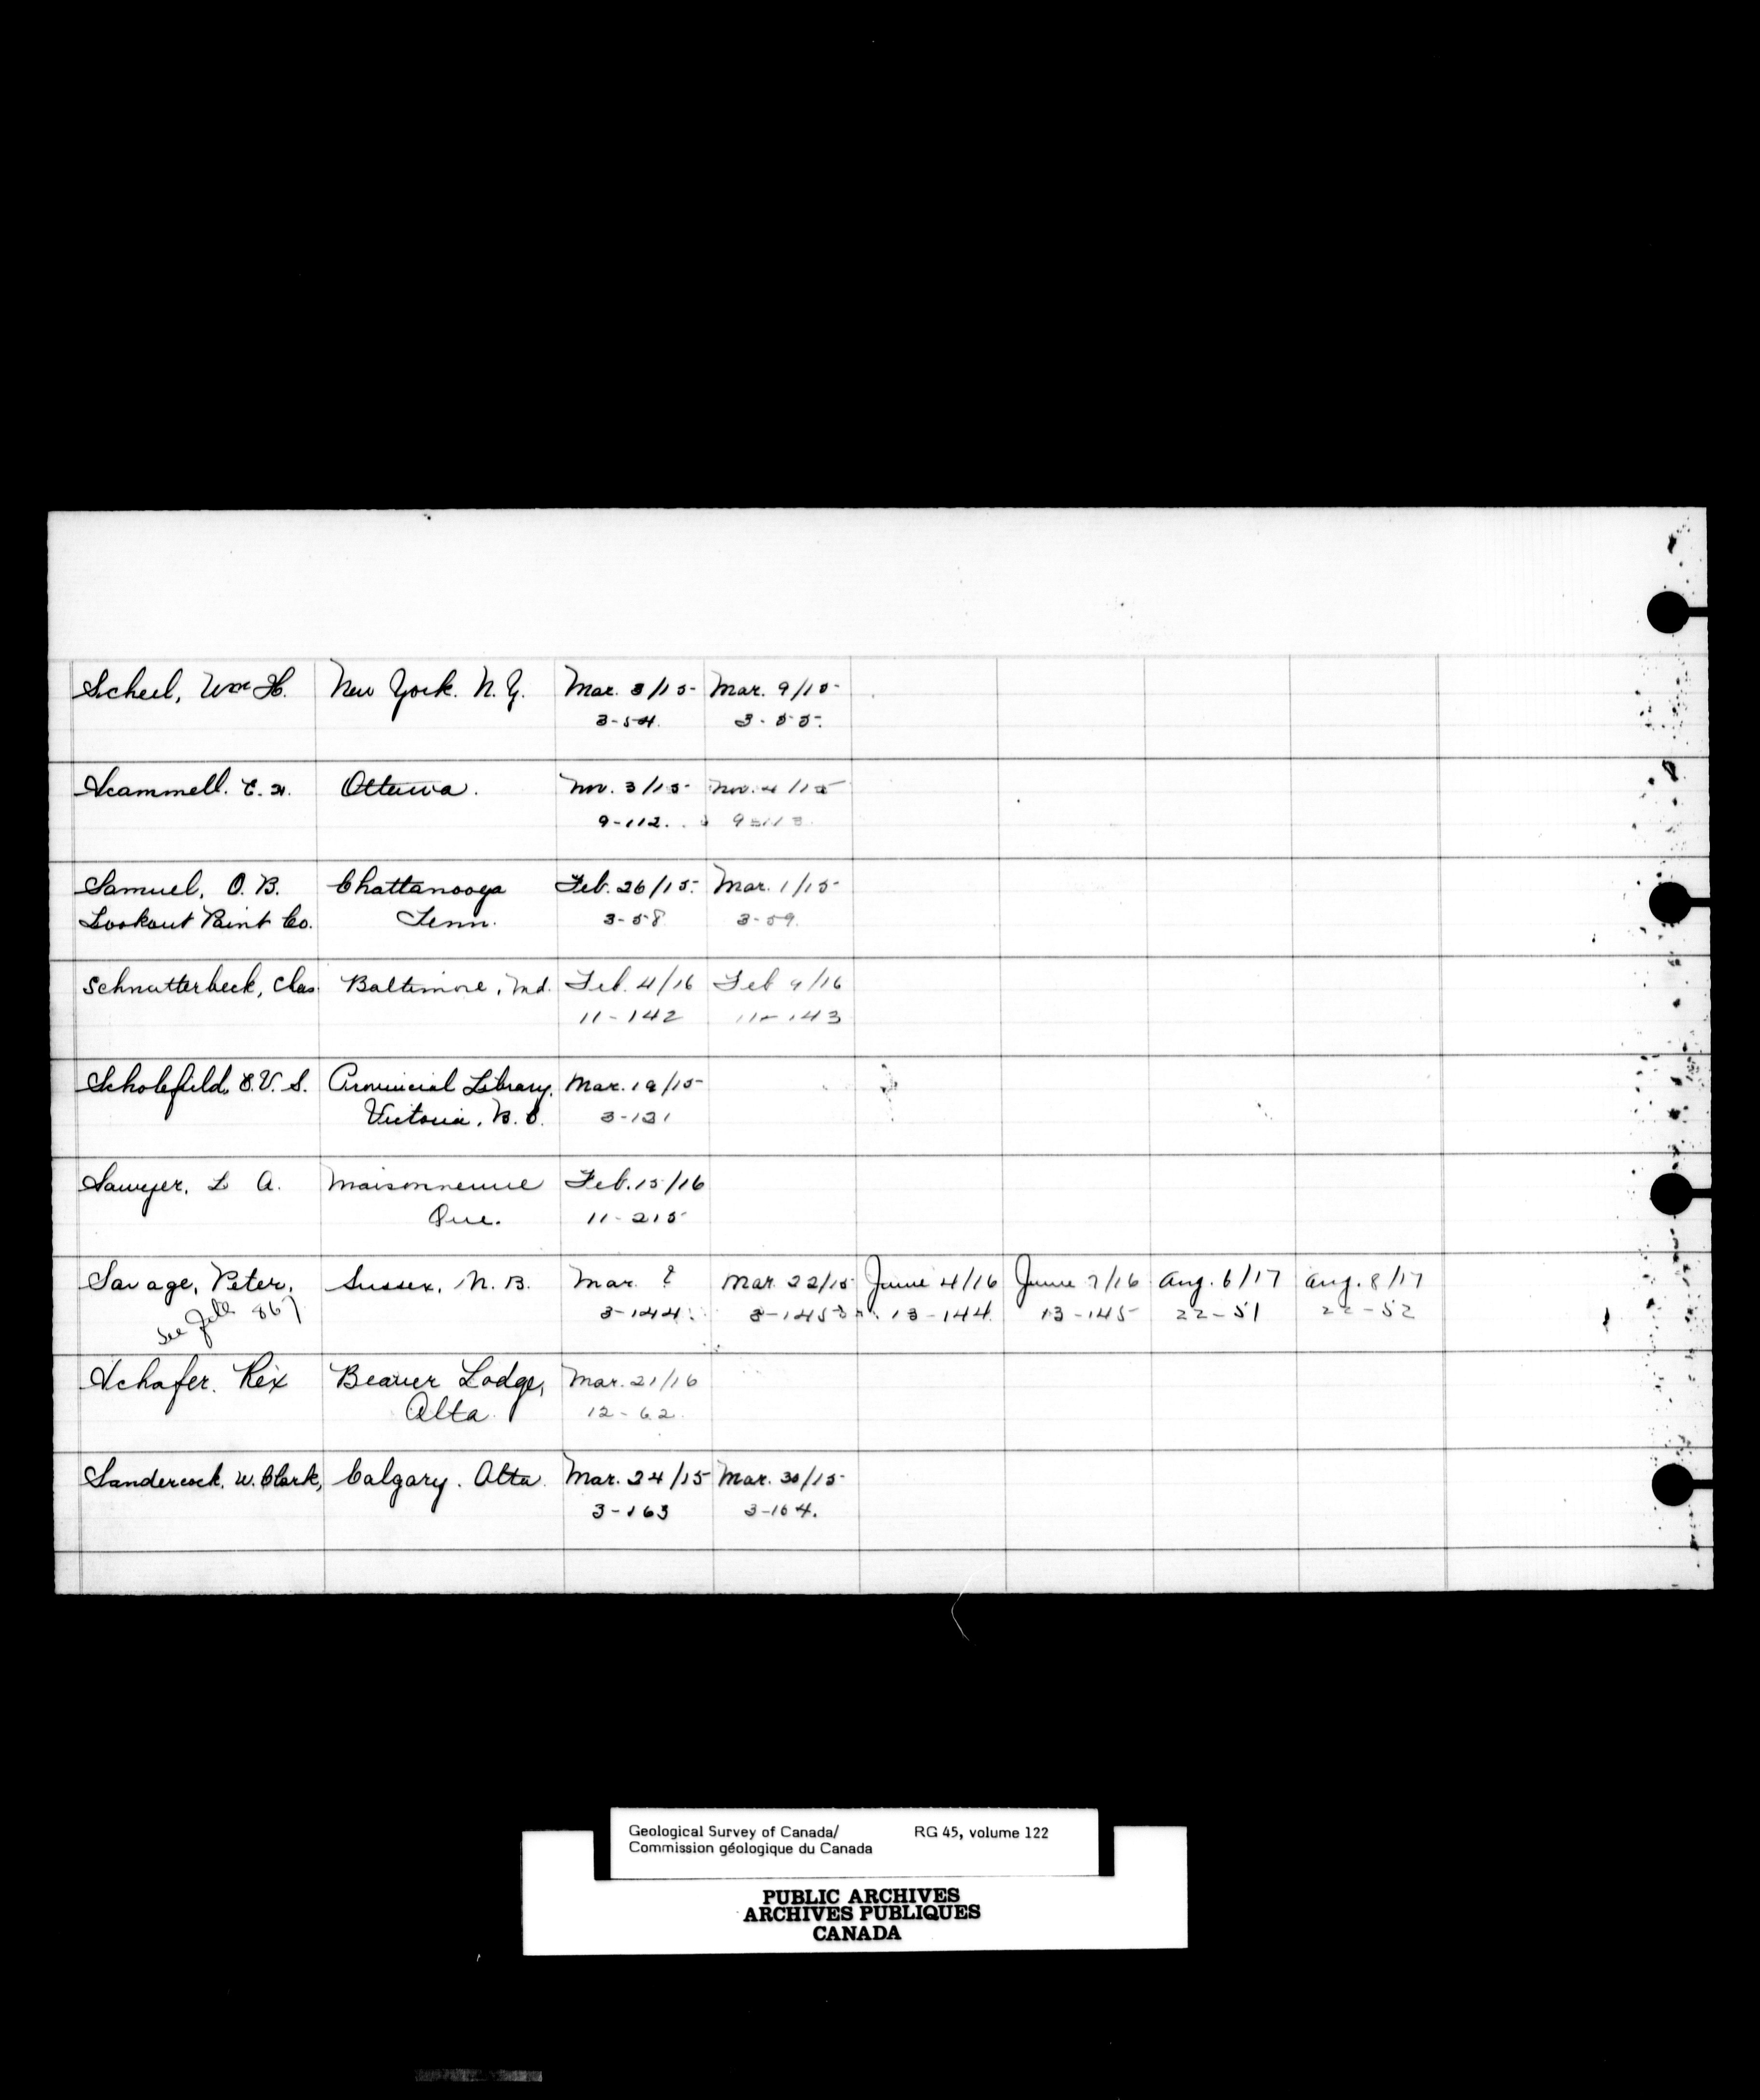 Scheel, Wm H. New York. N.Y. Mar. 8/15- Mar. 9/15-
3-54. 3-55.
Scammell. E. H. Ottawa. Nov. 3/15- Nov. 4/15
9-112. 9-113.
Samuel, O. B. Chattanooga Feb. 26/15. Mar. 1/15-
Lookout Paint Co. Tenn. 3-58 3-59.
Schnutterbeck, Chas. Baltimore, Md. Feb. 4/16 Feb 9/16
11-142 11-143
Scholefield, E.V.S. Provincial Library, Mar. 19/15-
Victoria, B.C. 3-131
Sawyer, L A. Maisonneuve Feb. 15/16
Que. 11-215
Savage, Peter, Sussex, N.B. Mar. ? Mar. 22/15 June 4/16 June 7/16 Aug. 6/17 Aug. 8/17
See 867 3-144. 3-145 13-144 13-145 22-51 22-52
Schafer. Rex Beaver Lodge, Mar. 21/16
Alta. 12-62.
Sandercock, W. Clark, Calgary. Alta. Mar. 24/15 Mar. 30/15-
3-163 3-164.
Geological Survey of Canada/ RG 45, volume 122
Commission géologique du Canada
PUBLIC ARCHIVES
ARCHIVES PUBLIQUES
CANADA